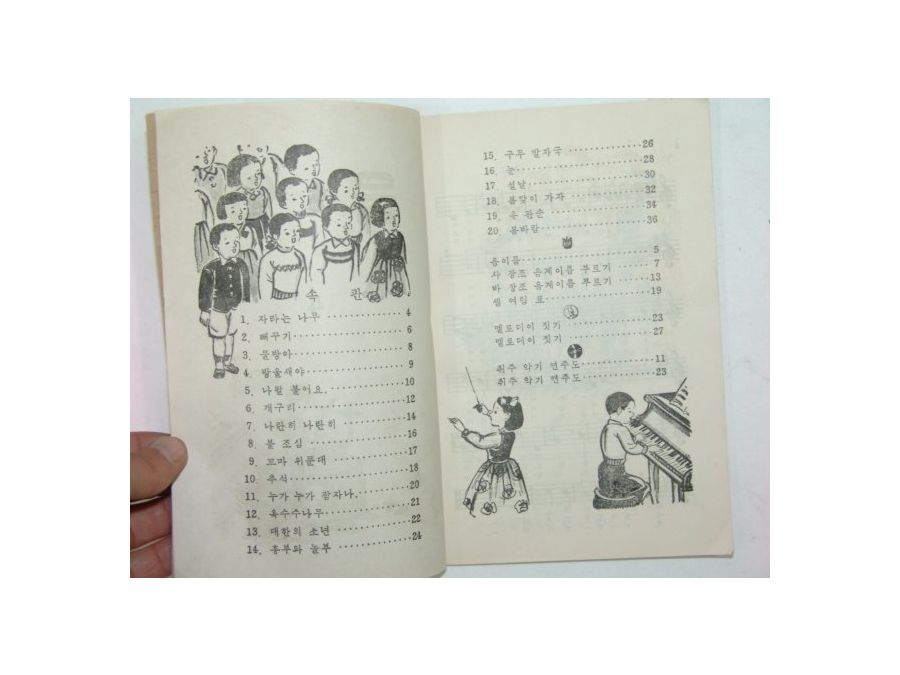 속 관
1. 자라는 나무 4
2. 뻐꾸기 6
3. 물방아 8
4. 방울새야 9
5. 나팔 불어요. 10
6. 개구리 12
7. 나란히 나란히 14
8. 불 조심 16
9. 꼬마 위문대 17
10. 추석 18
11. 누가 누가 잠자나. 20
12. 옥수수나무 21
13. 대한의 소년 22
14. 흥부와 놀부 24
15. 구두 발자국 26
16. 눈 28
17. 설날 30
18. 봄맞이 가자 32
19. 유 관순 34
20. 봄바람 36
음이름 5
사 장조 음계이름 부르기 7
바 장조 음계이름 부르기 13
셈 여림 표 19
멜로디이 짓기 23
멜로디이 짓기 27
취주 악기 연주도 11
취주 악기 연주도 23